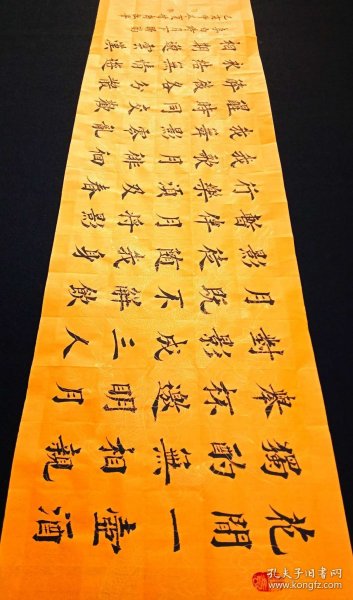 花間一壺酒
獨酌無相親
舉杯邀明月
對影成三人
月既不解飲
影徒隨我身
暫伴月將影
行樂須及春
我歌月徘徊
我舞影零亂
醒時同交歡
醉後各分散
永結無情遊
相期邈雲漢
孔夫子旧书网
www.kongfz.com